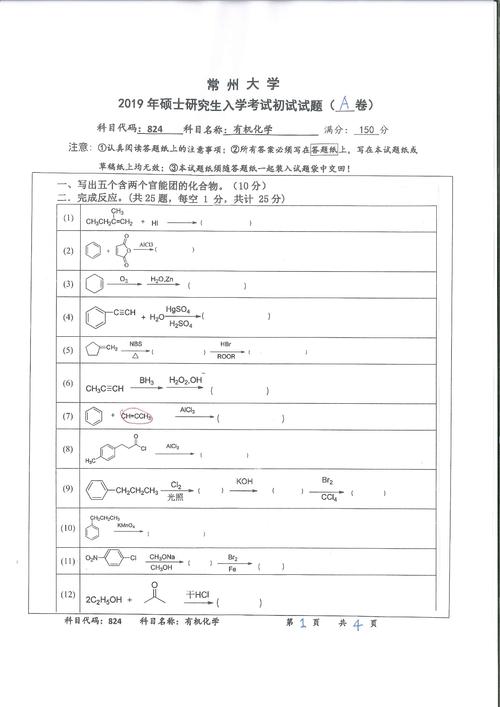 常 州 大 学
2019 年硕士研究生入学考试初试试题（ A 卷）
科目代码：824 科目名称：有机化学 满分： 150 分
注意：①认真阅读答题纸上的注意事项；②所有答案必须写在答题纸上，写在本试题纸或
草稿纸上均无效；③本试题纸须随答题纸一起装入试题袋中交回！
一、写出五个含两个官能团的化合物。（10 分）
二、完成反应。（共 25 题，每空 1 分，共计 25 分）
(1) CH3CH2C=CH2 CH3 + HI ( )
(2) + O O O AlCl3 ( )
(3) O3 H2O,Zn ( )
(4) C≡CH + H2O HgSO4 H2SO4 ( )
(5) =CH2 NBS △ ( ) HBr ROOR ( )
(6) CH3C≡CH BH3 H2O2,OH- ( )
(7) + AlCl3 ( )
(8) H3C O Cl AlCl3 ( )
(9) CH2CH2CH3 Cl2 光照 ( ) KOH ( ) Br2 CCl4 ( )
(10) CH2CH2CH3 KMnO4 ( )
(11) O2N Cl CH3ONa CH3OH ( ) Br2 Fe ( )
(12) 2C2H5OH + O 干HCl ( )
科目代码：824 科目名称：有机化学 第 1 页 共 4 页